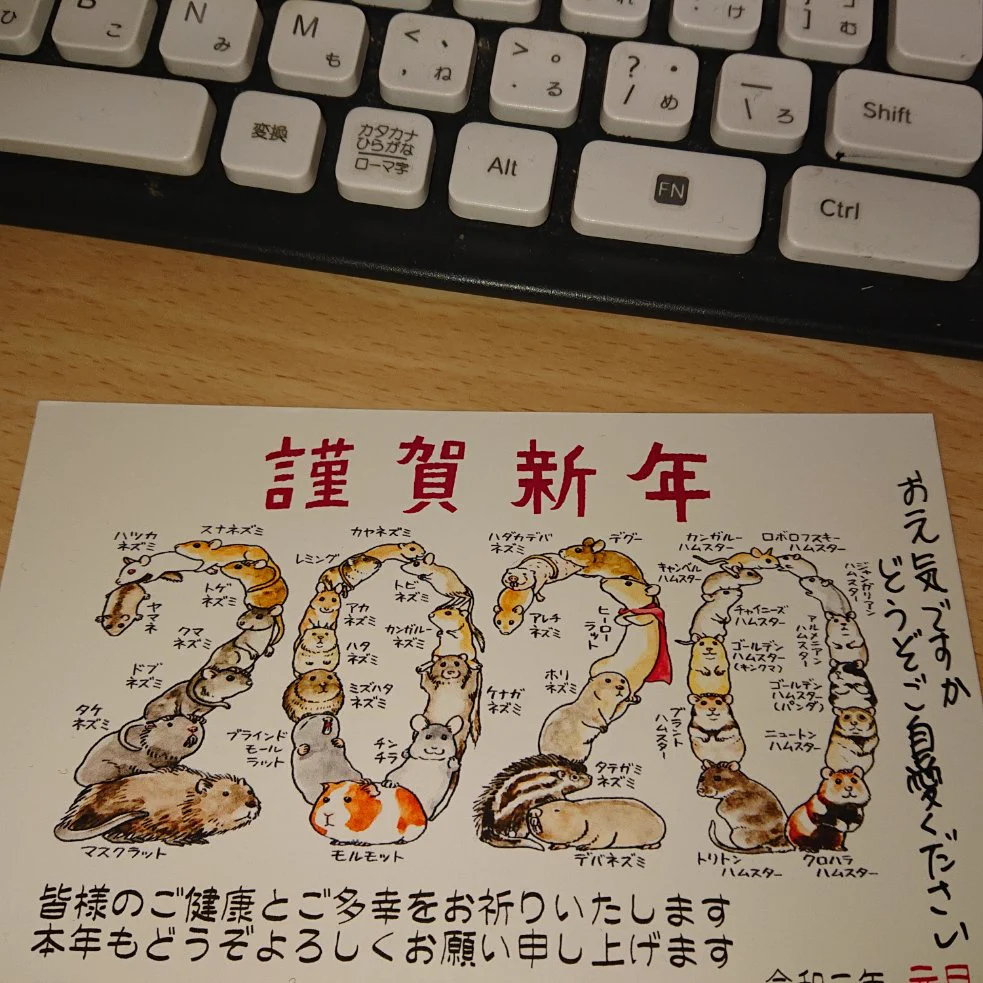 ひ
B こ
N み
M も
< 、
, ね
> 。
. る
? ・
/ め
\ ろ
れ
け
] む
Shift
変換
カタカナ
ひらがな
ローマ字
Alt
FN
Ctrl
謹賀新年
ハツカ
ネズミ
スナネズミ
トゲ
ネズミ
ヤマネ
クマ
ネズミ
ドブ
ネズミ
タケ
ネズミ
マスクラット
カヤネズミ
レミング
トビ
ネズミ
アカ
ネズミ
カンガルー
ネズミ
ハタ
ネズミ
ミズハタ
ネズミ
ケナガ
ネズミ
ブラインド
モール
ラット
チン
チラ
モルモット
ハダカデバ
ネズミ
デグー
アレチ
ネズミ
ヒーロー
ラット
ホリ
ネズミ
タテガミ
ネズミ
デバネズミ
カンガルー
ハムスター
ロボロフスキー
ハムスター
キャンベル
ハムスター
ジャンガリアン
ハムスター
チャイニーズ
ハムスター
アルメニアン
ハムスター
ゴールデン
ハムスター
(キンクマ)
ゴールデン
ハムスター
(パンダ)
ブラント
ハムスター
ニュートン
ハムスター
トリトン
ハムスター
クロハラ
ハムスター
お元気ですか
どうぞご自愛ください
皆様のご健康とご多幸をお祈りいたします
本年もどうぞよろしくお願い申し上げます
令和二年 元日